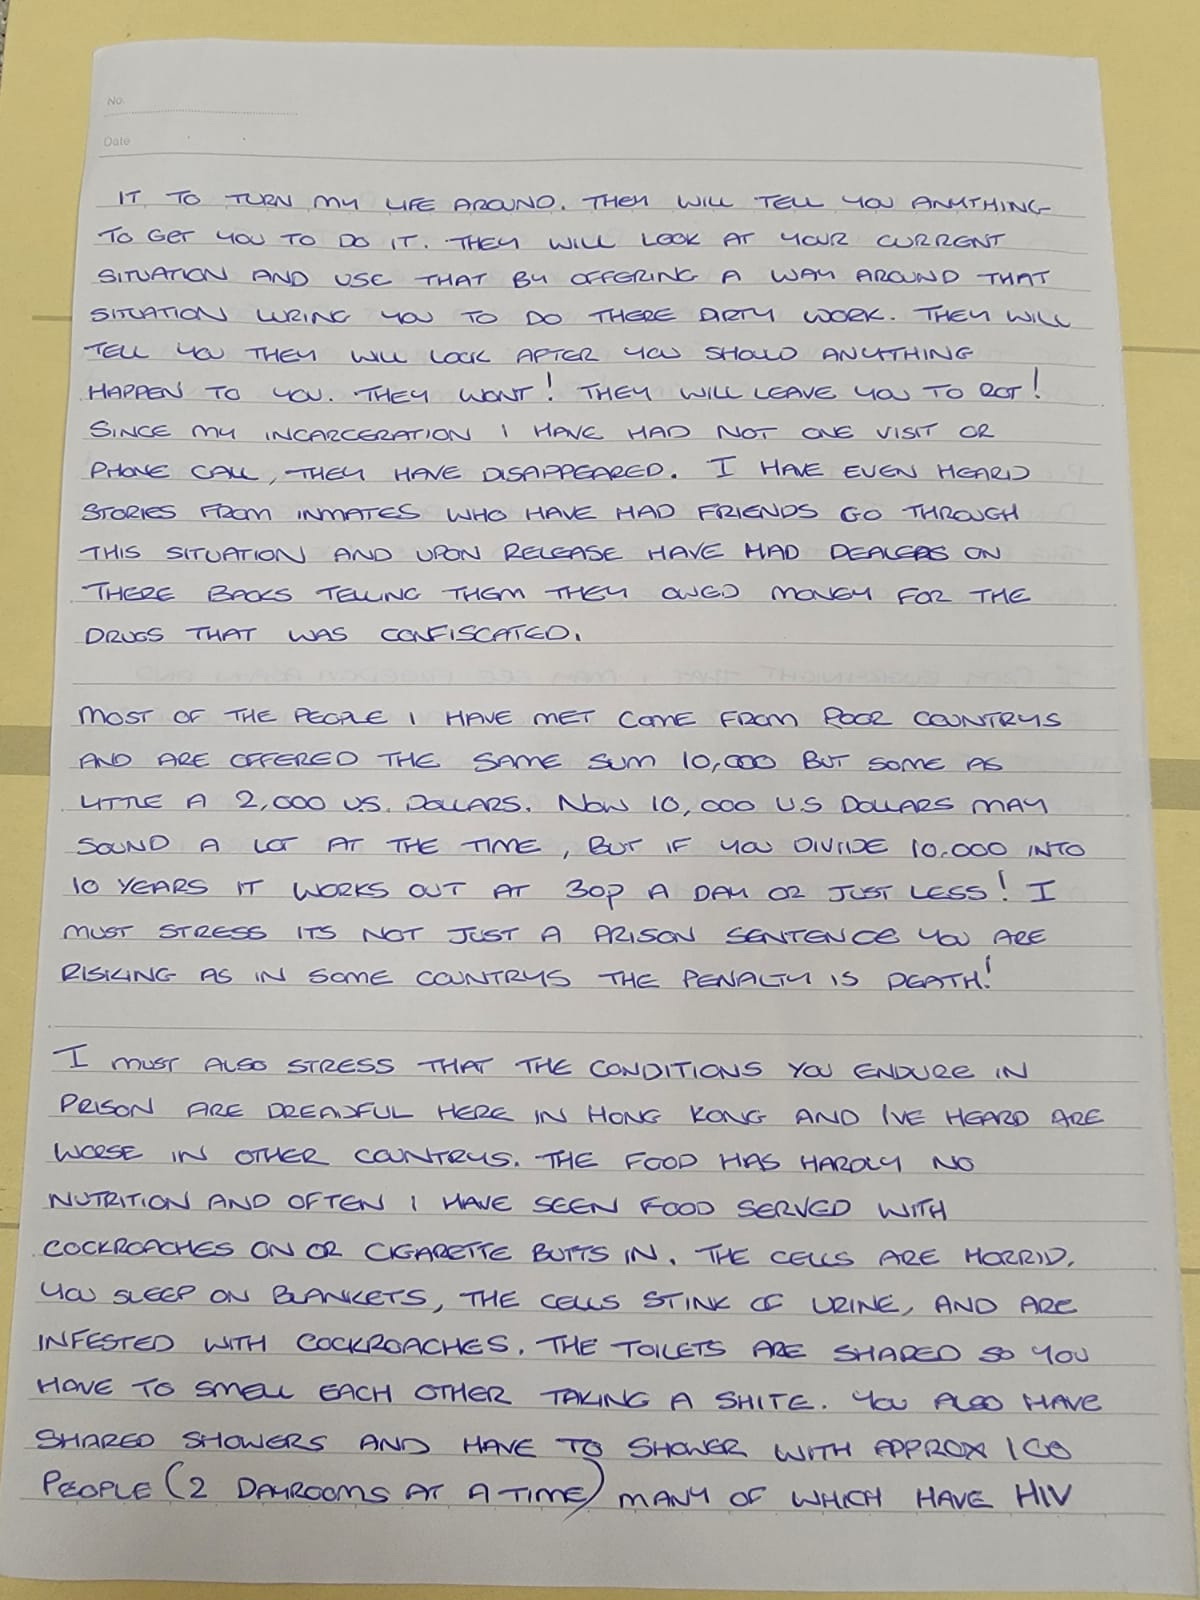 No.
Date
IT TO TURN MY LIFE AROUND. THEY WILL TELL YOU ANYTHING
TO GET YOU TO DO IT. THEY WILL LOOK AT YOUR CURRENT
SITUATION AND USE THAT BY OFFERING A WAY AROUND THAT
SITUATION LURING YOU TO DO THERE DIRTY WORK. THEY WILL
TELL YOU THEY WILL LOOK AFTER YOU SHOULD ANYTHING
HAPPEN TO YOU. THEY WONT! THEY WILL LEAVE YOU TO ROT!
SINCE MY INCARCERATION I HAVE HAD NOT ONE VISIT OR
PHONE CALL, THEY HAVE DISAPPEARED. I HAVE EVEN HEARD
STORIES FROM INMATES WHO HAVE HAD FRIENDS GO THROUGH
THIS SITUATION AND UPON RELEASE HAVE HAD DEALERS ON
THERE BACKS TELLING THEM THEY OWED MONEY FOR THE
DRUGS THAT WAS CONFISCATED.
MOST OF THE PEOPLE I HAVE MET COME FROM POOR COUNTRYS
AND ARE OFFERED THE SAME SUM 10,000 BUT SOME AS
LITTLE A 2,000 U.S. DOLLARS. NOW 10,000 U.S DOLLARS MAY
SOUND A LOT AT THE TIME, BUT IF YOU DIVIDE 10.000 INTO
10 YEARS IT WORKS OUT AT 30p A DAY OR JUST LESS! I
MUST STRESS ITS NOT JUST A PRISON SENTENCE YOU ARE
RISKING AS IN SOME COUNTRYS THE PENALTY IS DEATH!
I MUST ALSO STRESS THAT THE CONDITIONS YOU ENDURE IN
PRISON ARE DREADFUL HERE IN HONG KONG AND I'VE HEARD ARE
WORSE IN OTHER COUNTRYS. THE FOOD HAS HARDLY NO
NUTRITION AND OFTEN I HAVE SEEN FOOD SERVED WITH
COCKROACHES ON OR CIGARETTE BUTTS IN. THE CELLS ARE HORRID.
YOU SLEEP ON BLANKETS, THE CELLS STINK OF URINE, AND ARE
INFESTED WITH COCKROACHES. THE TOILETS ARE SHARED SO YOU
HAVE TO SMELL EACH OTHER TAKING A SHITE. YOU ALSO HAVE
SHARED SHOWERS AND HAVE TO SHOWER WITH APPROX 100
PEOPLE (2 DAYROOMS AT A TIME) MANY OF WHICH HAVE HIV